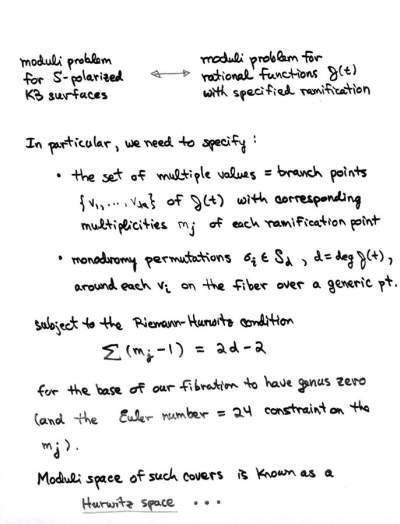 moduli problem for S-polarized K3 surfaces ⟷ moduli problem for rational functions J(t) with specified ramification
In particular, we need to specify:
• the set of multiple values = branch points
{v₁, ..., vₖ} of J(t) with corresponding
multiplicities mⱼ of each ramification point
• monodromy permutations σᵢ ∈ S_d, d = deg J(t),
around each vᵢ on the fiber over a generic pt.
subject to the Riemann-Hurwitz condition
∑(mⱼ-1) = 2d-2
for the base of our fibration to have genus zero
(and the Euler number = 24 constraint on the
mⱼ).
Moduli space of such covers is known as a
Hurwitz space ...